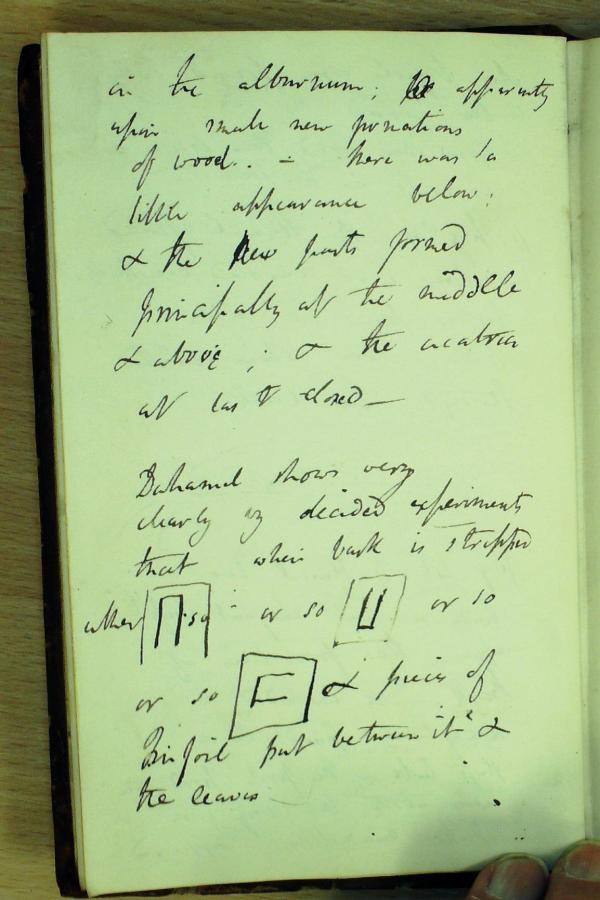 in the alburnum; apparently
upon small new formations
of wood. - there was
little appearance below;
& the new parts formed
principally at the middle
& above; & the
at last closed -
Duhamel shows very
clearly by decided experiments
that when bark is stripped
either so - or so or so
or so & pieces of
Tin foil put between it &
the leaves